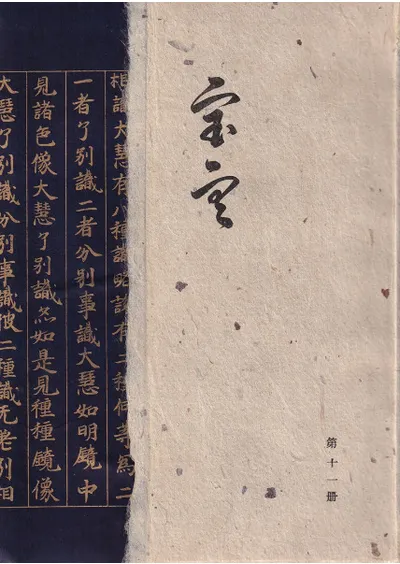 宝雲
第十一册
相識大慧有八種識略說有二種何等為二
一者了別識二者分別事識大慧如明鏡中
見諸色像大慧了別識亦如是見種種鏡像
大慧了別識分別事識彼二種識无差別相